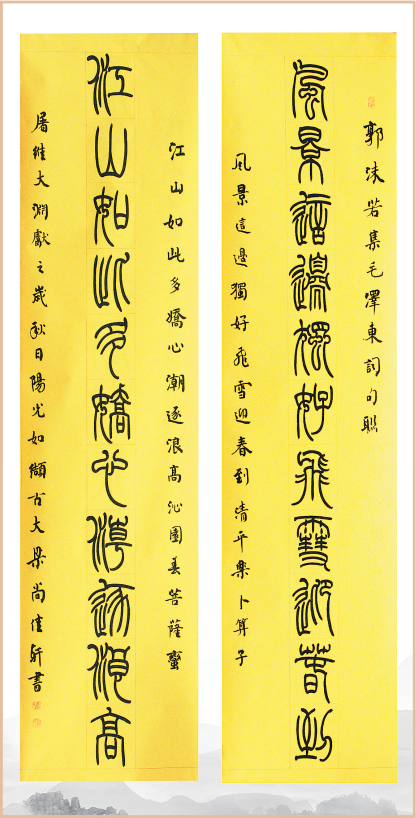 郭沫若集毛澤東詞句聯
風景這邊獨好飛雪迎春到
風景這邊獨好飛雪迎春到清平樂卜算子
江山如此多嬌心潮逐浪高沁園春菩薩蠻
江山如此多嬌心潮逐浪高
屠維大淵獻之歲秋日陽光如纈古大梁尚佳軒書